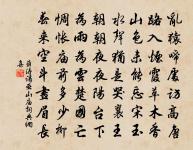 亂猿啼處訪高唐
路入煙霞草木香
山色未能忘宋玉
水聲猶是哭襄王
朝朝夜夜陽臺下
為雨為雲楚國亡
惆悵廟前多少柳
春來空斗畫眉長